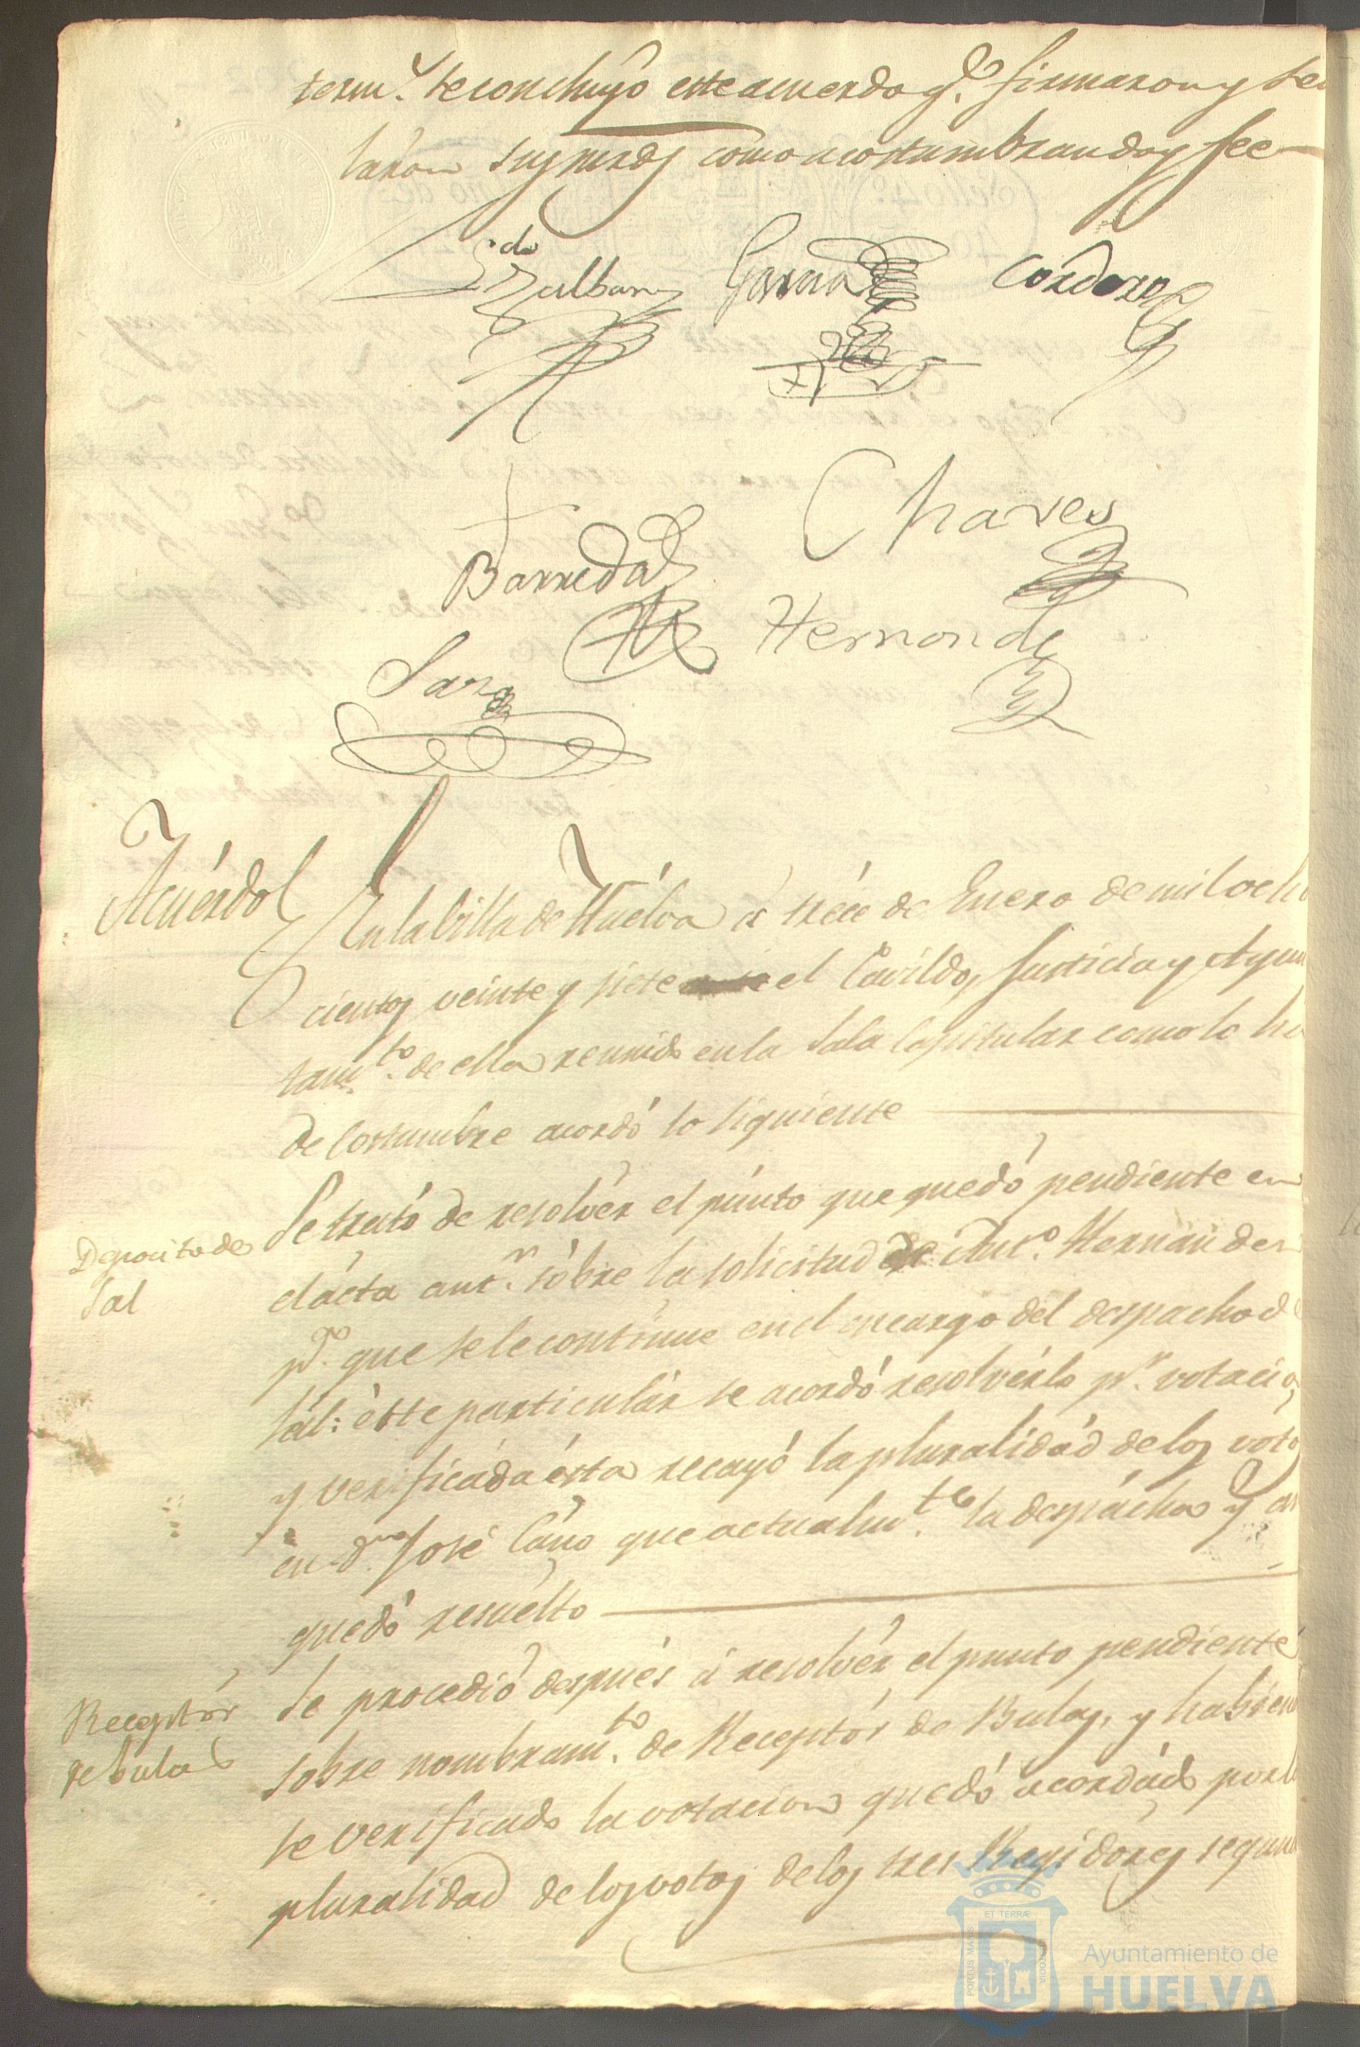 term.º se concluyó este acuerdo q.e firmaron y se
laron sus mrds como acostumbran doy fee
L.do Zalban
Garcia
Cordero
Chaves
Barreda
Hernandz
Sanz
Acuérdo
En la Villa de Huelva á tréce de Enero de mil ocho
cientos veinte y siete el Cavildo, Justicia y Ayun
tam.to de ella reunido en la Sala Capitular como lo ha
de costumbre acordó lo siguiente
Deposito de
Sal
Se trató de resolvér el púnto que quedó pendiente en
el ácta ant.r sóbre la solicitud de Ant.º Hernánder
p.ª que se le contínue en el encargo del despacho de
sál: éste particulár se acordó resolvérlo p.r votacio
y verificáda ésta recayó la pluralidád de los voto
en d.n José Cáno que actualm.te la despácha y asi
quedó resuélto
Receptór
de bulas
Se procedió después á resolvér el punto pendiente
sobre nombram.to de Receptór de Bulas, y habien
se verificado la votacion quedó acordádo por la
pluralidad de los votos de los tres Regidores segun
PORTUS MARIS
ET TERRÆ
CUSTODIA
Ayuntamiento de
HUELVA